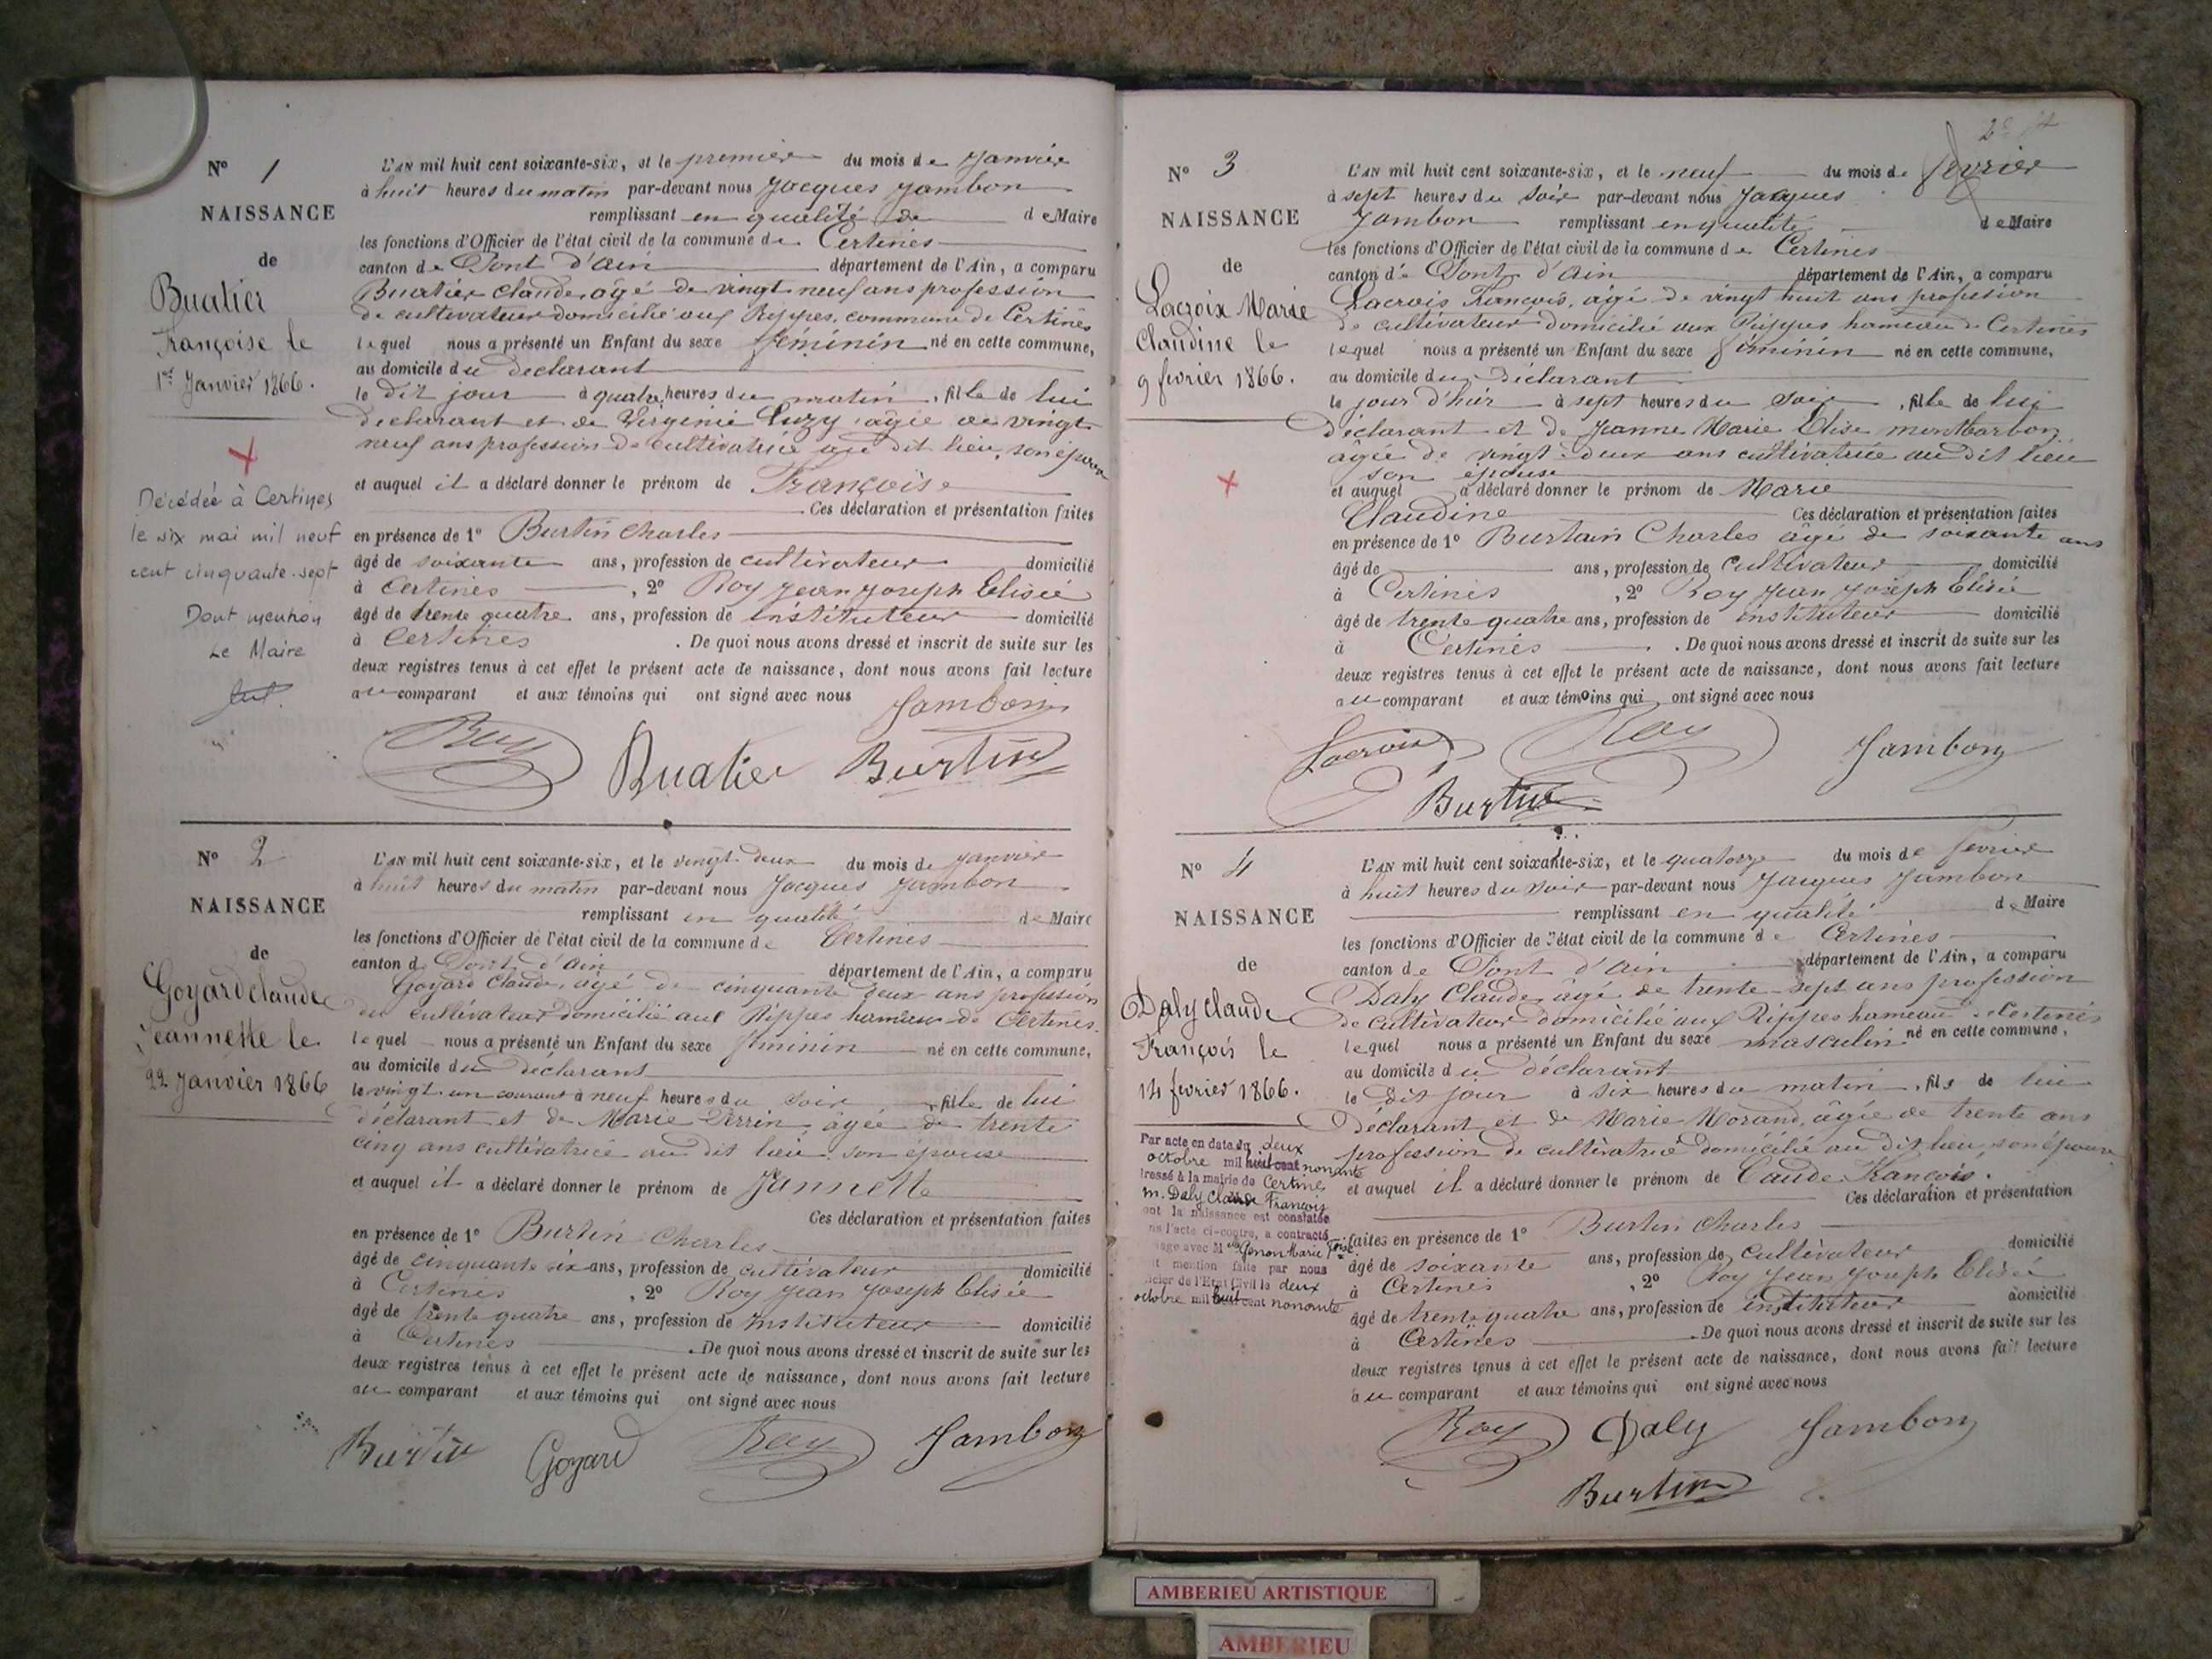 N° 1
NAISSANCE
de
Buatier
Françoise le
1er Janvier 1866.
Décédée à Certines
le six mai mil neuf
cent cinquante-sept
Dont mention
Le Maire
L'AN mil huit cent soixante-six, et le premier du mois de Janvier
à huit heures du matin par-devant nous Jacques Jambon
remplissant en qualité de de Maire
les fonctions d'Officier de l'état civil de la commune de Certines
canton de Pont d'Ain département de l'Ain, a comparu
Buatier Claude, âgé de vingt neuf ans profession
de cultivateur domicilié aux Rippes, commune de Certines
lequel nous a présenté un Enfant du sexe féminin né en cette commune,
au domicile du déclarant
le dit jour à quatre heures du matin, fille de lui
déclarant et de Virginie Luzy âgée de vingt
neuf ans profession de cultivatrice au dit lieu, son épouse
et auquel il a déclaré donner le prénom de Françoise
Ces déclaration et présentation faites
en présence de 1° Burtin Charles
âgé de soixante ans, profession de cultivateur domicilié
à Certines, 2° Roy Jean Joseph Elisée
âgé de trente quatre ans, profession de instituteur domicilié
à Certines. De quoi nous avons dressé et inscrit de suite sur les
deux registres tenus à cet effet le présent acte de naissance, dont nous avons fait lecture
au comparant et aux témoins qui ont signé avec nous
Jambon
Roy Buatier Burtin
N° 2
NAISSANCE
de
Goyard Claude
Jeannette le
22 Janvier 1866
L'AN mil huit cent soixante-six, et le vingt-deux du mois de janvier
à huit heures du matin par-devant nous Jacques Jambon
remplissant en qualité de Maire
les fonctions d'Officier de l'état civil de la commune de Certines
canton de Pont d'Ain département de l'Ain, a comparu
Goyard Claude, âgé de cinquante deux ans profession
de cultivateur domicilié aux Rippes hameau de Certines.
lequel nous a présenté un Enfant du sexe féminin né en cette commune,
au domicile du déclarant
le vingt-un courant à neuf heures du soir, fille de lui
déclarant et de Marie Perrin, âgée de trente
cinq ans cultivatrice au dit lieu son épouse
et auquel il a déclaré donner le prénom de Jannette
Ces déclaration et présentation faites
en présence de 1° Burtin Charles
âgé de cinquante six ans, profession de cultivateur domicilié
à Certines, 2° Roy Jean Joseph Elisée
âgé de trente quatre ans, profession de instituteur domicilié
à Certines. De quoi nous avons dressé et inscrit de suite sur les
deux registres tenus à cet effet le présent acte de naissance, dont nous avons fait lecture
au comparant et aux témoins qui ont signé avec nous
Burtin Goyard Roy Jambon
N° 3
NAISSANCE
de
Lacroix Marie
Claudine le
9 fevrier 1866.
L'AN mil huit cent soixante-six, et le neuf du mois de fevrier
à sept heures du soir par-devant nous Jacques
Jambon remplissant en qualité de Maire
les fonctions d'Officier de l'état civil de la commune de Certines
canton de Pont d'Ain département de l'Ain, a comparu
Lacroix François, âgé de vingt huit ans profession
de cultivateur domicilié aux Rippes hameau de Certines
lequel nous a présenté un Enfant du sexe féminin né en cette commune,
au domicile du déclarant
le jour d'hier à sept heures du soir, fille de lui
déclarant et de Jeanne Marie Elise montbarbon
agée de vingt-deux ans cultivatrice au dit lieu
son épouse
et auquel a déclaré donner le prénom de Marie
Claudine Ces déclaration et présentation faites
en présence de 1° Burtain Charles âgé de soixante ans
âgé de ans, profession de cultivateur domicilié
à Certines, 2° Roy Jean Joseph Elisée
âgé de trente quatre ans, profession de instituteur domicilié
à Certines. De quoi nous avons dressé et inscrit de suite sur les
deux registres tenus à cet effet le présent acte de naissance, dont nous avons fait lecture
au comparant et aux témoins qui ont signé avec nous
Lacroix Roy Jambon
Burtin
N° 4
NAISSANCE
de
Daly Claude
François le
14 fevrier 1866.
Par acte en date du deux
octobre mil huit cent nonante
dressé à la mairie de Certines
M. Daly Claude François
ont la naissance est constatée
ns l'acte ci-contre, a contracté
iage avec Mlle Genon Marie Fçoise
t mention faite par nous
icier de l'Etat Civil le deux
octobre mil huit cent nonante
L'AN mil huit cent soixante-six, et le quatorze du mois de fevrier
à huit heures du soir par-devant nous Jacques Jambon
remplissant en qualité de Maire
les fonctions d'Officier de l'état civil de la commune de Certines
canton de Pont d'Ain département de l'Ain, a comparu
Daly Claude, âgé de trente-sept ans profession
de cultivateur domicilié aux Rippes hameau de Certines
lequel nous a présenté un Enfant du sexe masculin né en cette commune,
au domicile du déclarant
le dit jour à six heures du matin, fils de lui
Déclarant et de Marie Morand, âgée de trente ans
profession de cultivatrice domicilié au dit lieu, son épouse
et auquel il a déclaré donner le prénom de Claude François.
Ces déclaration et présentation
faites en présence de 1° Burtin Charles
âgé de soixante ans, profession de cultivateur domicilié
à Certines, 2° Roy Jean Joseph Elisée
âgé de trente quatre ans, profession de instituteur domicilié
à Certines. De quoi nous avons dressé et inscrit de suite sur les
deux registres tenus à cet effet le présent acte de naissance, dont nous avons fait lecture
au comparant et aux témoins qui ont signé avec nous
Roy Daly Jambon
Burtin
AMBERIEU ARTISTIQUE
AMBERIEU